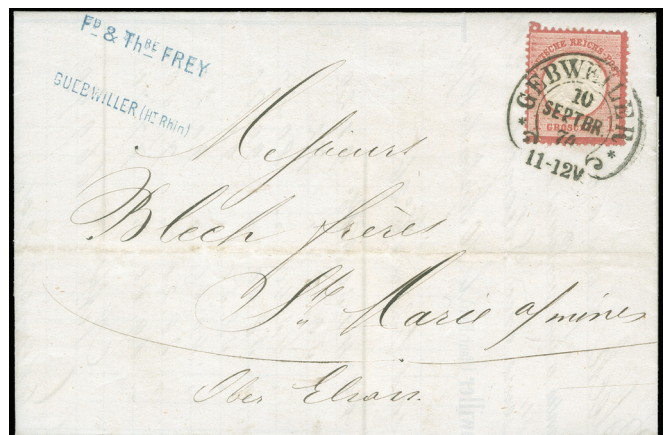 Fᴅ & Thʙᴇ FREY
GUEBWILLER (Hᵀ Rhin)
DEUTSCHE REICHS-POST
GEBWEILER
10
SEPTBR
74
11-12V
GROSCHEN
Messieurs
Blech frères
Ste Marie a/mines
Ober Elsass.